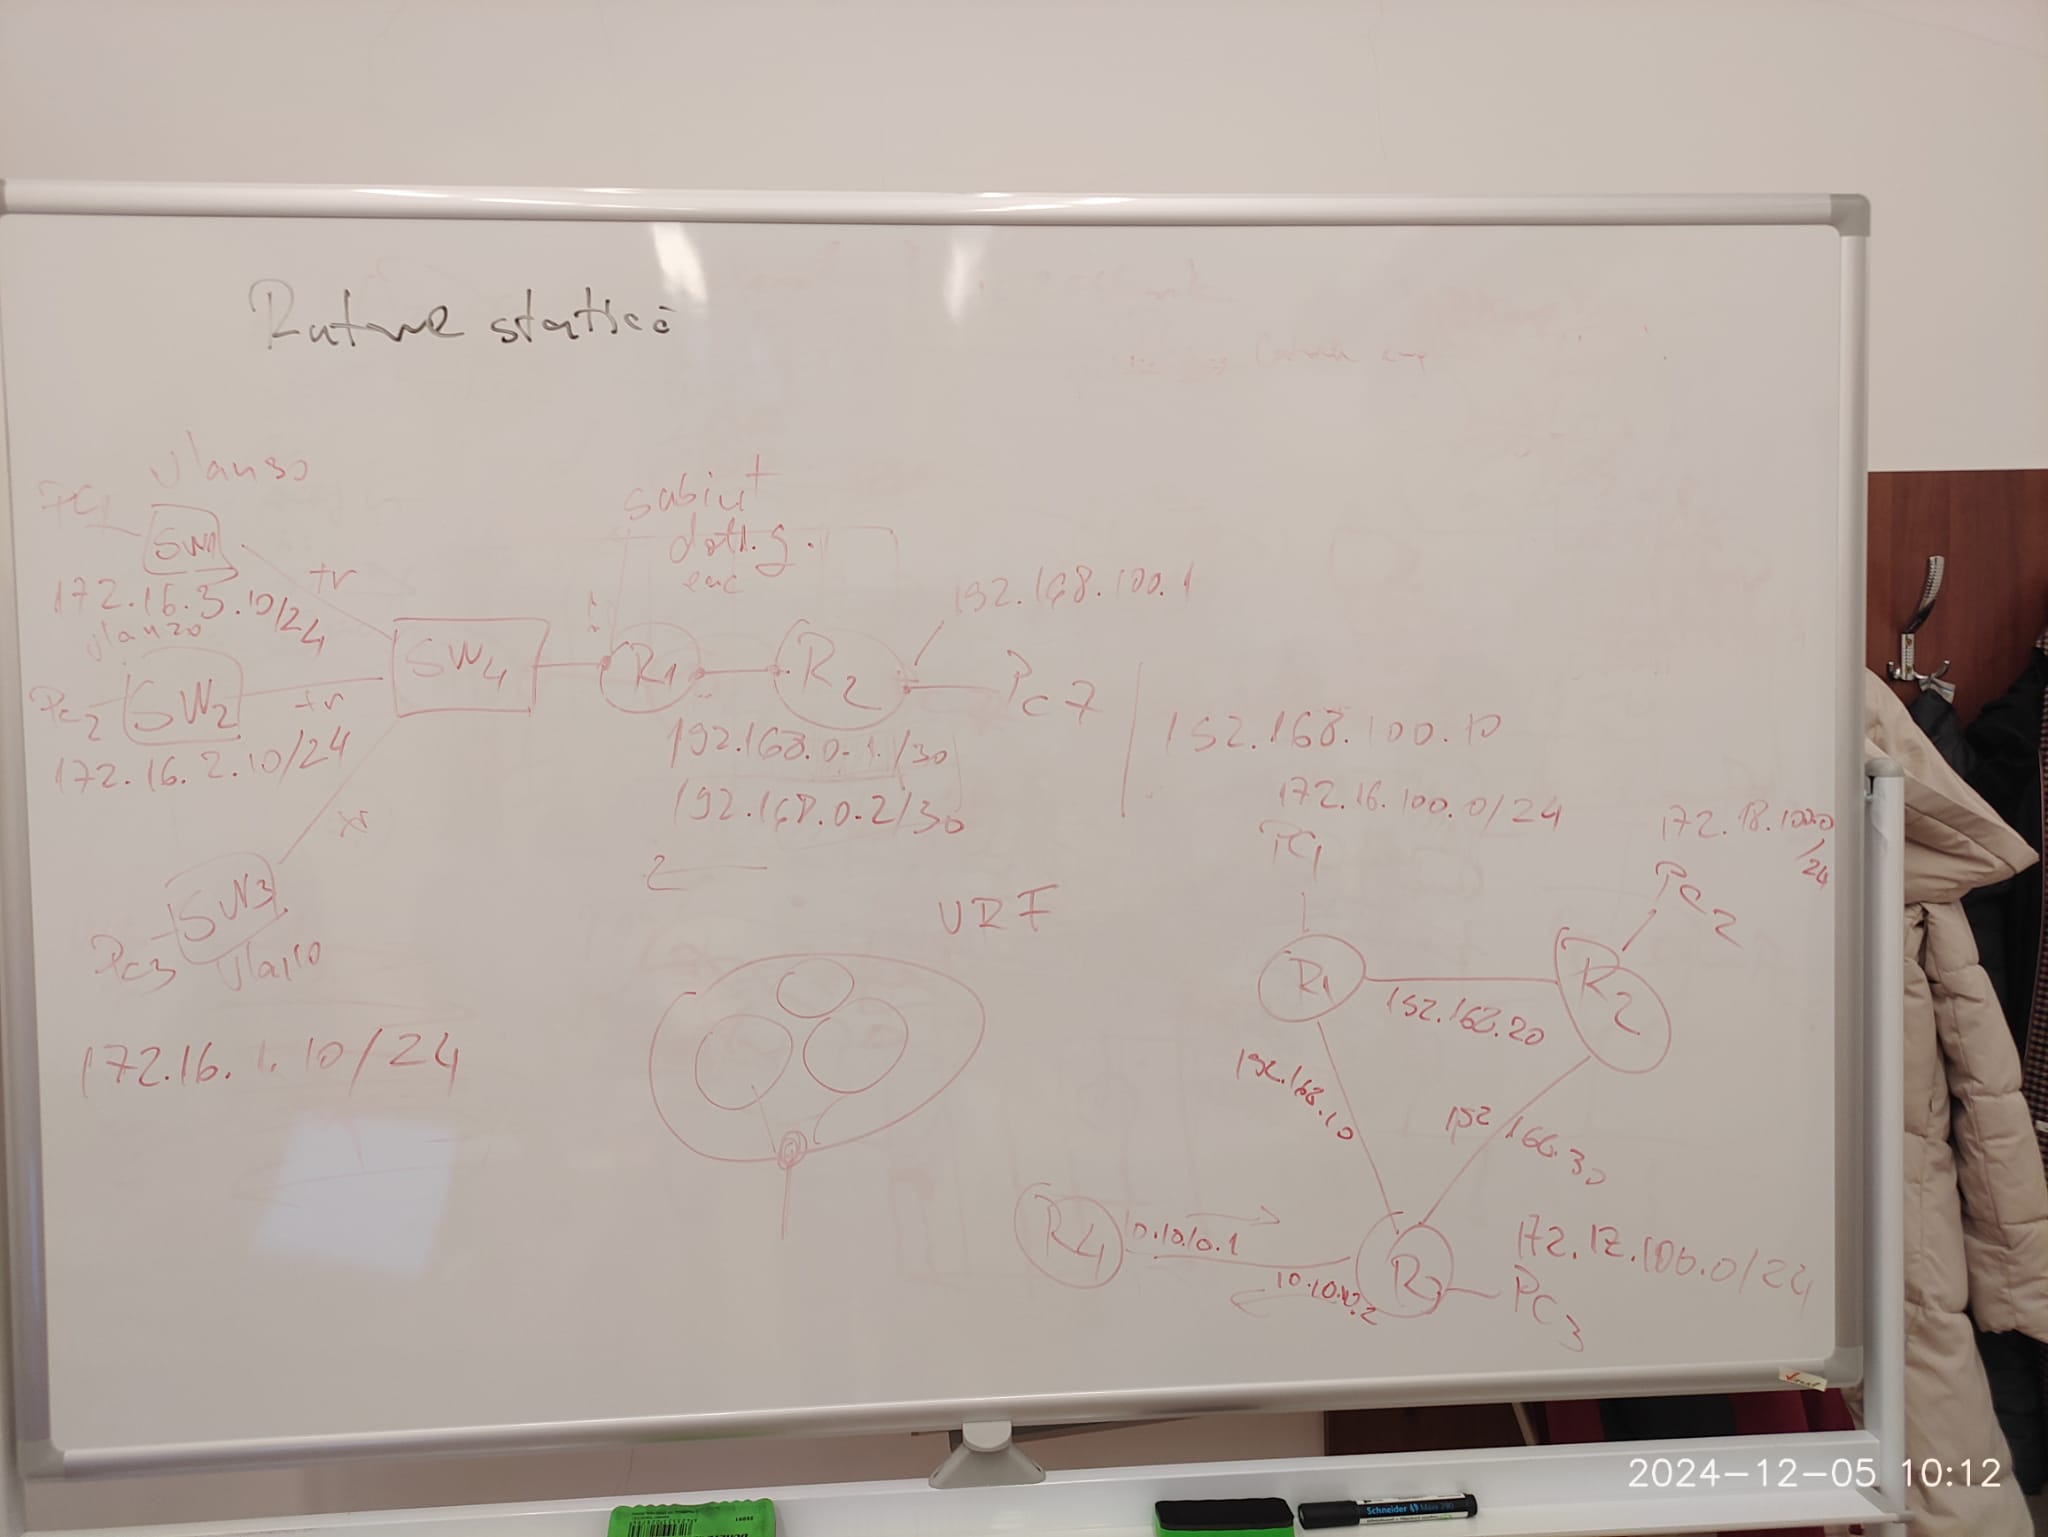 Rutare statică
vlan30
PC1
SW1
172.16.3.10/24
tr
vlan20
Pc2
SW2
tr
172.16.2.10/24
SW4
tr
SW3
Pc3
vlan10
172.16.1.10/24
subint
dot1.q.
enc
R1
R2
192.168.100.1
Pc7
192.168.0.1/30
192.168.0.2/30
192.168.100.10
VRF
172.16.100.0/24
PC1
172.18.100.0
/24
Pc2
R1
R2
192.168.20
192.168.10
192.168.30
R4
10.10.10.1
10.10.10.2
R3
172.17.100.0/24
PC3
Schneider Maxx 290
2024-12-05 10:12